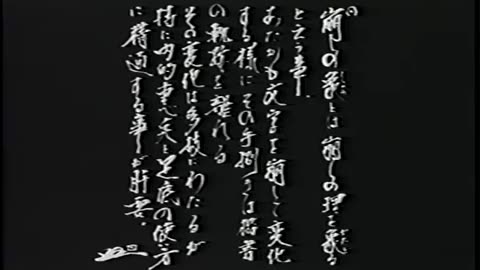 崩しの象とは崩しの理を象る
と云う事。
あたかも文字を崩して変化
する様にその手捌きは
の軌跡を離れる
その変化は多岐にわたるが
特に内的と足底の使い方
に精通する事が肝要。